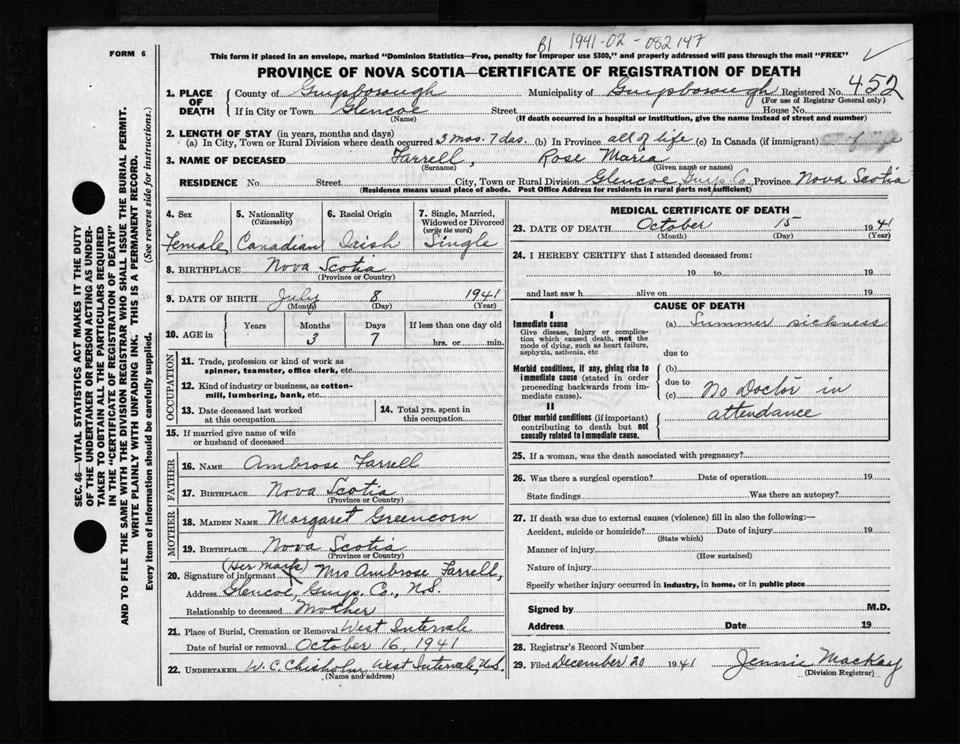 B1 1941-02-082147
FORM 6
This form if placed in an envelope, marked "Dominion Statistics—Free, penalty for improper use $300," and properly addressed will pass through the mail "FREE"
PROVINCE OF NOVA SCOTIA—CERTIFICATE OF REGISTRATION OF DEATH
1. PLACE OF DEATH
County of Guysborough Municipality of Guysborough Registered No. 452
(For use of Registrar General only)
If in City or Town Glencoe Street House No.
(Name) (If death occurred in a hospital or institution, give the name instead of street and number)
2. LENGTH OF STAY (in years, months and days)
(a) In City, Town or Rural Division where death occurred 3 mos. 7 das. (b) In Province all of life (c) In Canada (if immigrant)
3. NAME OF DECEASED Farrell, Rose Maria
(Surname) (Given name or names)
RESIDENCE No. Street City, Town or Rural Division Glencoe, Guys. Co. Province Nova Scotia
(Residence means usual place of abode. Post Office Address for residents in rural parts not sufficient)
4. Sex
Female
5. Nationality
(Citizenship)
Canadian
6. Racial Origin
Irish
7. Single, Married, Widowed or Divorced
(write the word)
Single
8. BIRTHPLACE Nova Scotia
(Province or Country)
9. DATE OF BIRTH July 8 1941
(Month) (Day) (Year)
10. AGE in
Years Months Days If less than one day old
3 7 hrs. or min.
OCCUPATION
11. Trade, profession or kind of work as
spinner, teamster, office clerk, etc.
12. Kind of industry or business, as cotton-
mill, lumbering, bank, etc.
13. Date deceased last worked
at this occupation
14. Total yrs. spent in
this occupation
15. If married give name of wife
or husband of deceased
FATHER
16. NAME Ambrose Farrell
17. BIRTHPLACE Nova Scotia
(Province or Country)
MOTHER
18. MAIDEN NAME Margaret Greencorn
19. BIRTHPLACE Nova Scotia
(Province or Country)
(Her Mark)
20. Signature of informant X Mrs Ambrose Farrell,
Address Glencoe, Guys. Co., N.S.
Relationship to deceased Mother
21. Place of Burial, Cremation or Removal West Intervale
Date of burial or removal October 16, 1941
22. UNDERTAKER W. C. Chisholm, West Intervale, N.S.
(Name and address)
MEDICAL CERTIFICATE OF DEATH
23. DATE OF DEATH October 15 1941
(Month) (Day) (Year)
24. I HEREBY CERTIFY that I attended deceased from:
19 to 19
and last saw h alive on 19
CAUSE OF DEATH
I
Immediate cause
Give disease, injury or complica-
tion which caused death, not the
mode of dying, such as heart failure,
asphyxia, asthenia, etc
(a) Summer sickness
due to
Morbid conditions, if any, giving rise to
immediate cause (stated in order
proceeding backwards from im-
mediate cause).
(b)
due to
(c) No Doctor in
attendance
II
Other morbid conditions (if important)
contributing to death but not
causally related to immediate cause.
25. If a woman, was the death associated with pregnancy?
26. Was there a surgical operation? Date of operation 19
State findings Was there an autopsy?
27. If death was due to external causes (violence) fill in also the following:—
Accident, suicide or homicide? Date of injury 19
(State which)
Manner of injury
(How sustained)
Nature of injury
Specify whether injury occurred in industry, in home, or in public place
Signed by M.D.
Address Date 19
28. Registrar's Record Number
29. Filed December 20 1941 Jennie MacKay
(Division Registrar)
SEC. 46—VITAL STATISTICS ACT MAKES IT THE DUTY
OF THE UNDERTAKER OR PERSON ACTING AS UNDER-
TAKER TO OBTAIN ALL THE PARTICULARS REQUIRED
IN THE "CERTIFICATE OF REGISTRATION OF DEATH"
AND TO FILE THE SAME WITH THE DIVISION REGISTRAR WHO SHALL ISSUE THE BURIAL PERMIT.
WRITE PLAINLY WITH UNFADING INK. THIS IS A PERMANENT RECORD.
Every item of information should be carefully supplied. (See reverse side for instructions.)